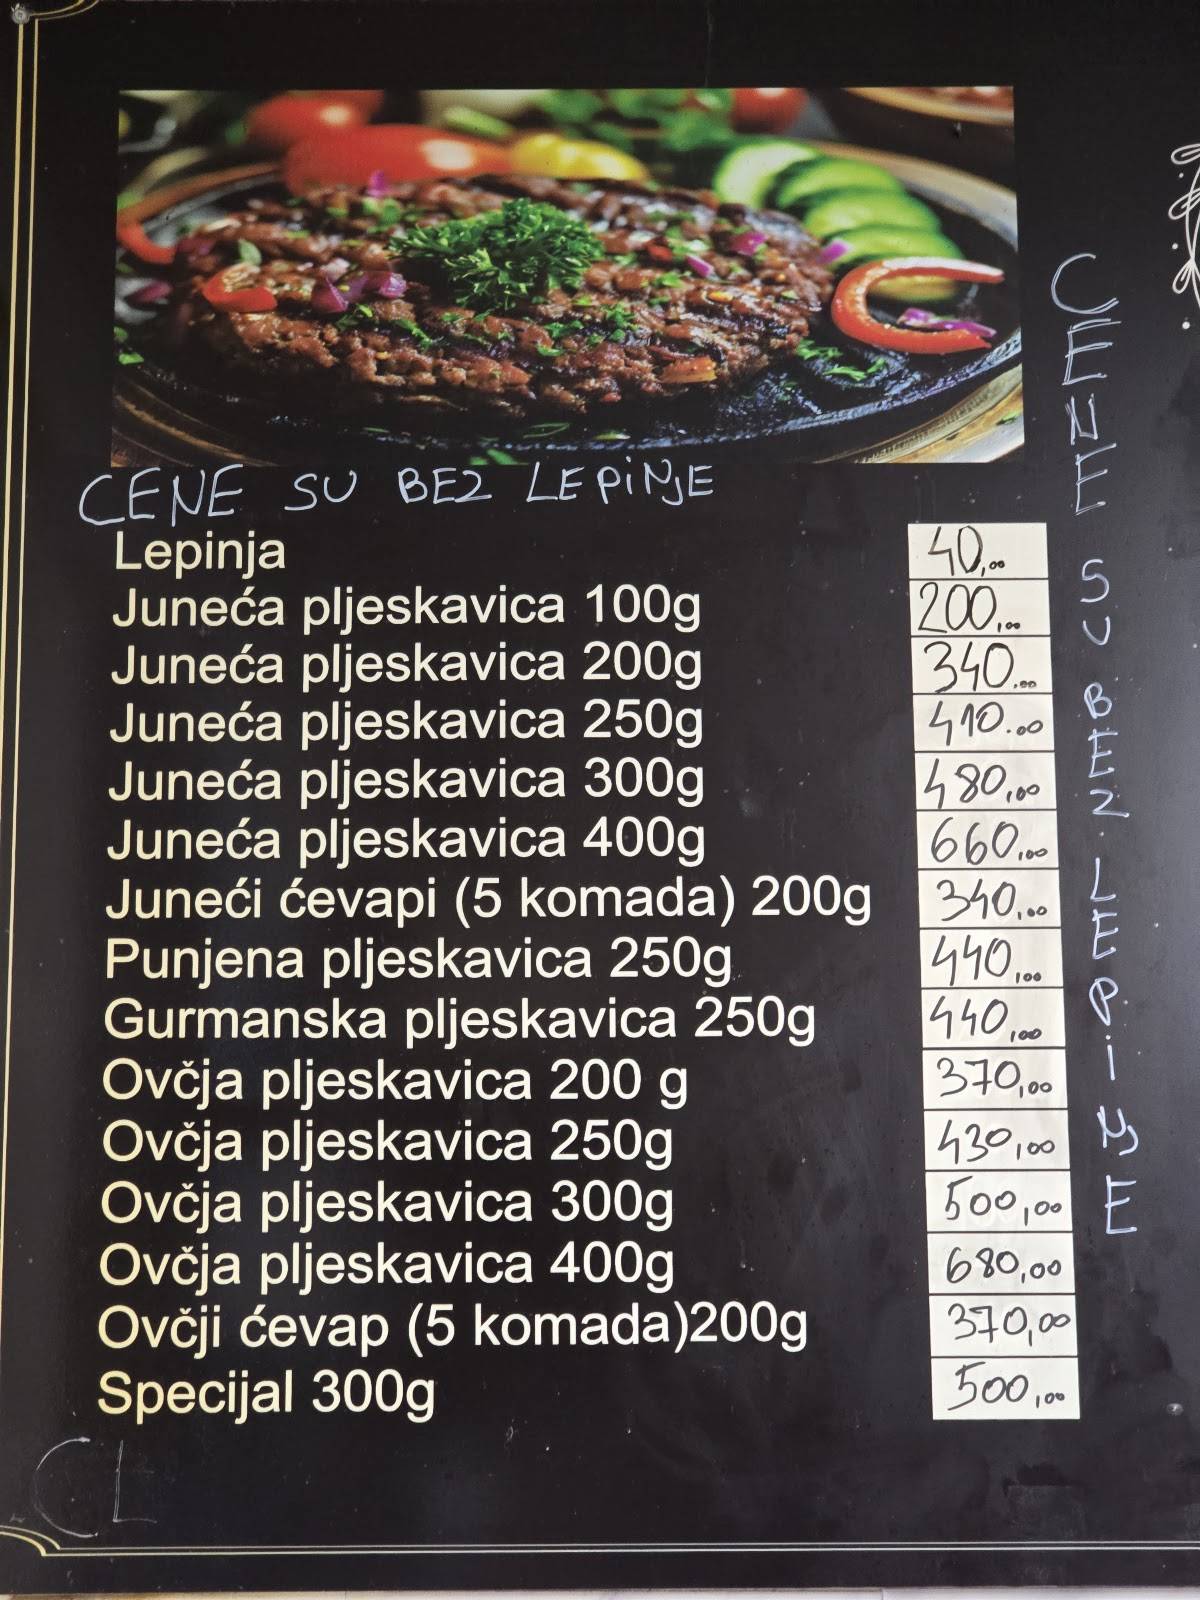 CENE SU BEZ LEPINJE
Lepinja 40,00
Juneća pljeskavica 100g 200,00
Juneća pljeskavica 200g 340,00
Juneća pljeskavica 250g 410.00
Juneća pljeskavica 300g 480,00
Juneća pljeskavica 400g 660,00
Juneći ćevapi (5 komada) 200g 340,00
Punjena pljeskavica 250g 440,00
Gurmanska pljeskavica 250g 440,00
Ovčja pljeskavica 200 g 370,00
Ovčja pljeskavica 250g 430,00
Ovčja pljeskavica 300g 500,00
Ovčja pljeskavica 400g 680,00
Ovčji ćevap (5 komada)200g 370,00
Specijal 300g 500,00
CENE SU BEZ LEPINJE
CL